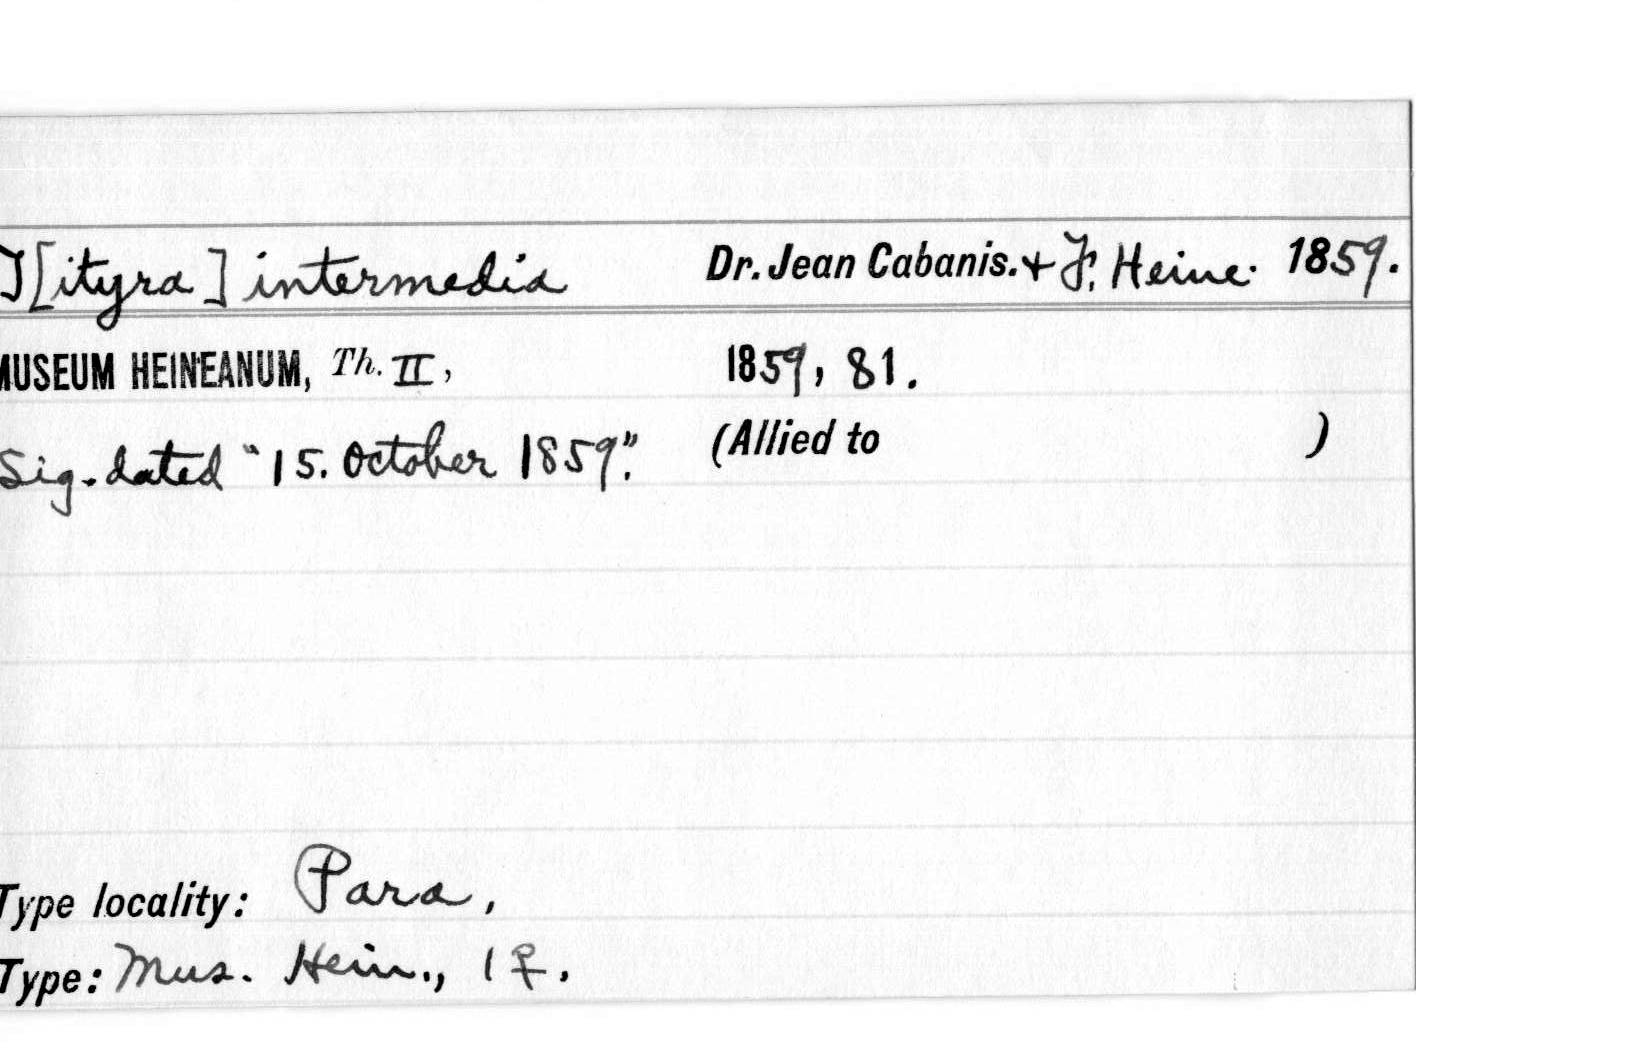 T[ityra] intermedia Dr. Jean Cabanis. + F. Heine. 1859.
MUSEUM HEINEANUM, Th. II, 1859, 81.
Sig. dated "15. October 1859". (Allied to )
Type locality: Para,
Type: Mus. Hein., 1 ♀.